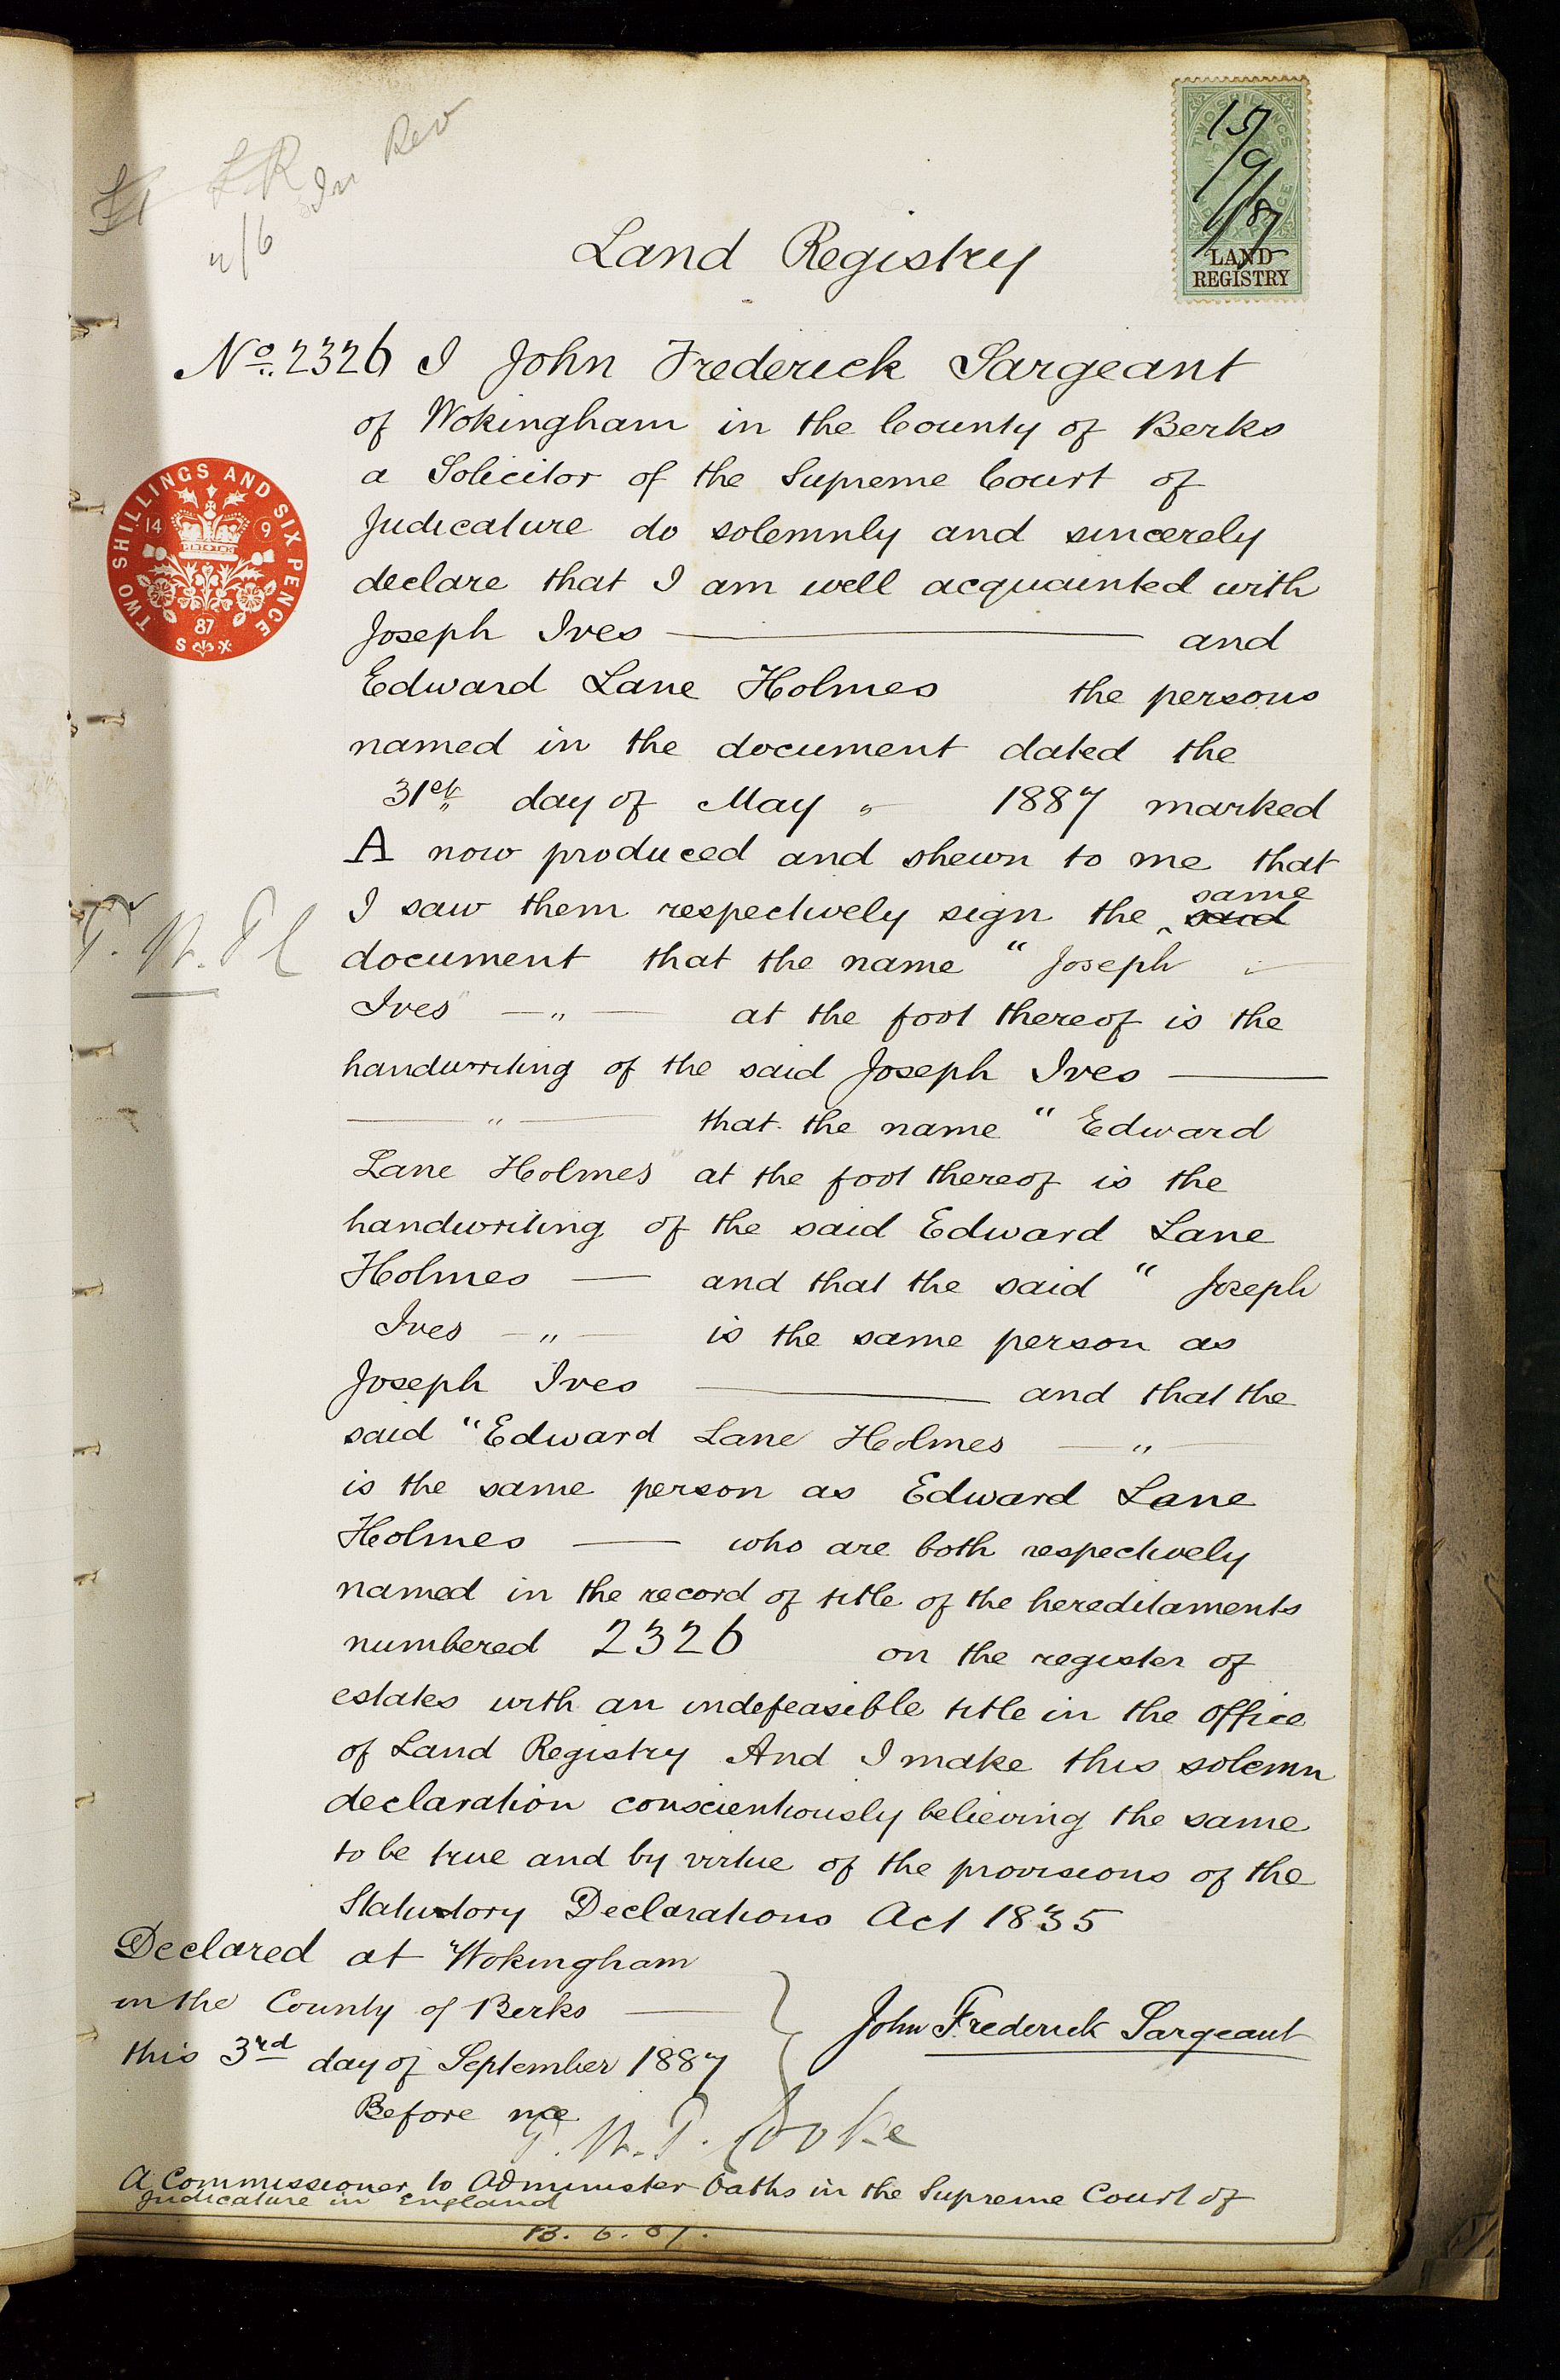 LR
In Rev
2/6
TWO SHILLINGS
15/9/87
LAND
REGISTRY
Land Registry
No. 2326 I John Frederick Sargeant
of Wokingham in the County of Berks
a Solicitor of the Supreme Court of
Judicature do solemnly and sincerely
declare that I am well acquainted with
Joseph Ives and
Edward Lane Holmes the persons
named in the document dated the
31st day of May " 1887 marked
A now produced and shewn to me that
I saw them respectively sign the ‸ same said
document that the name " Joseph
Ives" — " — at the foot thereof is the
handwriting of the said Joseph Ives —
— " — that the name " Edward
Lane Holmes" at the foot thereof is the
handwriting of the said Edward Lane
Holmes — and that the said " Joseph
Ives — " — is the same person as
Joseph Ives — and that the
said "Edward Lane Holmes — " —
is the same person as Edward Lane
Holmes — who are both respectively
named in the record of title of the hereditaments
numbered 2326 on the register of
estates with an indefeasible title in the Office
of Land Registry And I make this solemn
declaration conscientiously believing the same
to be true and by virtue of the provisions of the
Statutory Declarations Act 1835
TWO SHILLINGS AND SIX PENCE
14 9
87
S X
Declared at Wokingham
in the County of Berks —
this 3rd day of September 1887
John Frederick Sargeant
Before me
T. W. T. Cooke
A Commissioner to Administer Oaths in the Supreme Court of
Judicature in England